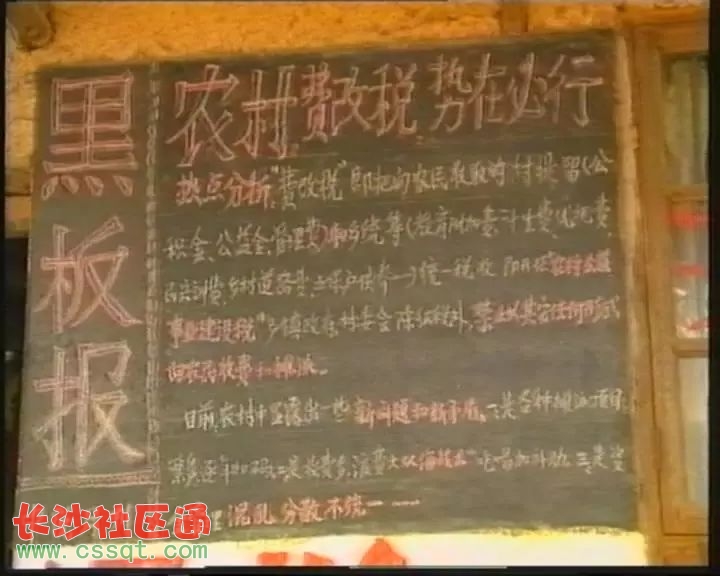 黑板报
农村费改税 势在必行
热点分析:"费改税"即把向农民收取的村提留(公
积金、公益金、管理费)和乡统筹(教育附加费、计生费、优抚费、
民兵训费、乡村道路费、五保户供养)统一税收
事业建设税"乡镇政府、村委会除征税外,禁止以其它任何形式
向农民收费和摊派。
目前农村中显露出一些新问题和新矛盾。一是各种摊派项目
逐年加码;二是收费多,浪费大 三是
混乱 分散不统一……
长沙社区通
www.cssqt.com